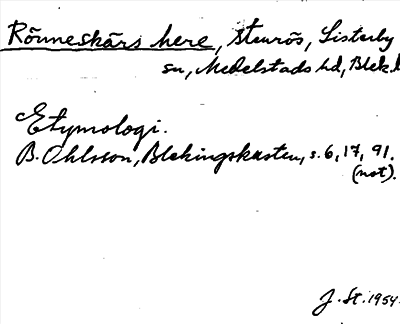 Rönneskärs here, stenrös, Listerby
sn, Medelstads hd, Blek.l
Etymologi.
B. Ohlsson, Blekingskusten, s. 6, 17, 91.
(not).
J. St. 1954.